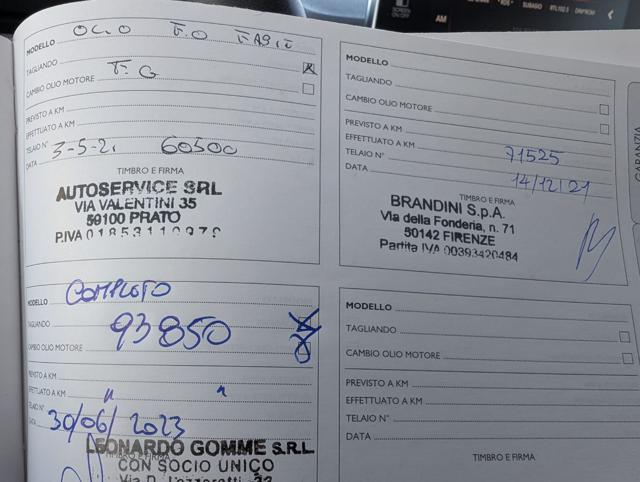 SCREEN
ON/OFF
AM
SUBASIO
RTL 102.5
MODELLO
OLIO F.O F.ARIA
TAGLIANDO
F. G
CAMBIO OLIO MOTORE
PREVISTO A KM
EFFETTUATO A KM
TELAIO N° 3-5-21 60500
DATA
TIMBRO E FIRMA
AUTOSERVICE SRL
VIA VALENTINI 35
59100 PRATO
P.IVA
MODELLO
TAGLIANDO
CAMBIO OLIO MOTORE
PREVISTO A KM
EFFETTUATO A KM
TELAIO N° 71525
DATA 14/12/21
TIMBRO E FIRMA
BRANDINI S.p.A.
Via della Fonderia, n. 71
50142 FIRENZE
Partita IVA 00393420484
GARANZIA
MODELLO COMPLETO
TAGLIANDO 93850
CAMBIO OLIO MOTORE
PREVISTO A KM
EFFETTUATO A KM " "
TELAIO N°
DATA 30/06/2023
TIMBRO E FIRMA
LEONARDO GOMME S.R.L.
CON SOCIO UNICO
MODELLO
TAGLIANDO
CAMBIO OLIO MOTORE
PREVISTO A KM
EFFETTUATO A KM
TELAIO N°
DATA
TIMBRO E FIRMA